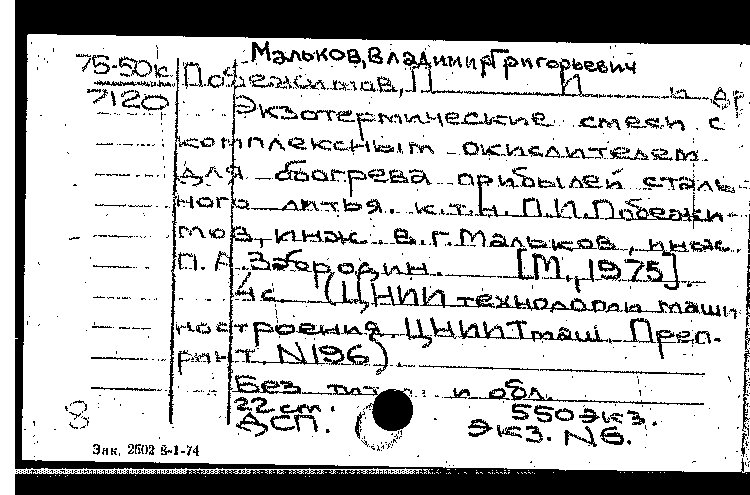 Мальков, Владимир Григорьевич
75-50к
7120
Побежимов, П И и др
Экзотермические смеси с
комплексным окислителем
для обогрева прибылей сталь-
ного литья. к.т.н. П.И.Побежи-
мов, инж. В.Г.Мальков, инж.
П. А.Забородин. [М., 1975].
4с. (ЦНИИ технологии маши
ностроения. ЦНИИТмаш. Преп-
ринт. N196).
Без титл. и обл.
22 см. 550 экз.
ДСП. экз. N6.
8
Зак. 2502 8-1-74